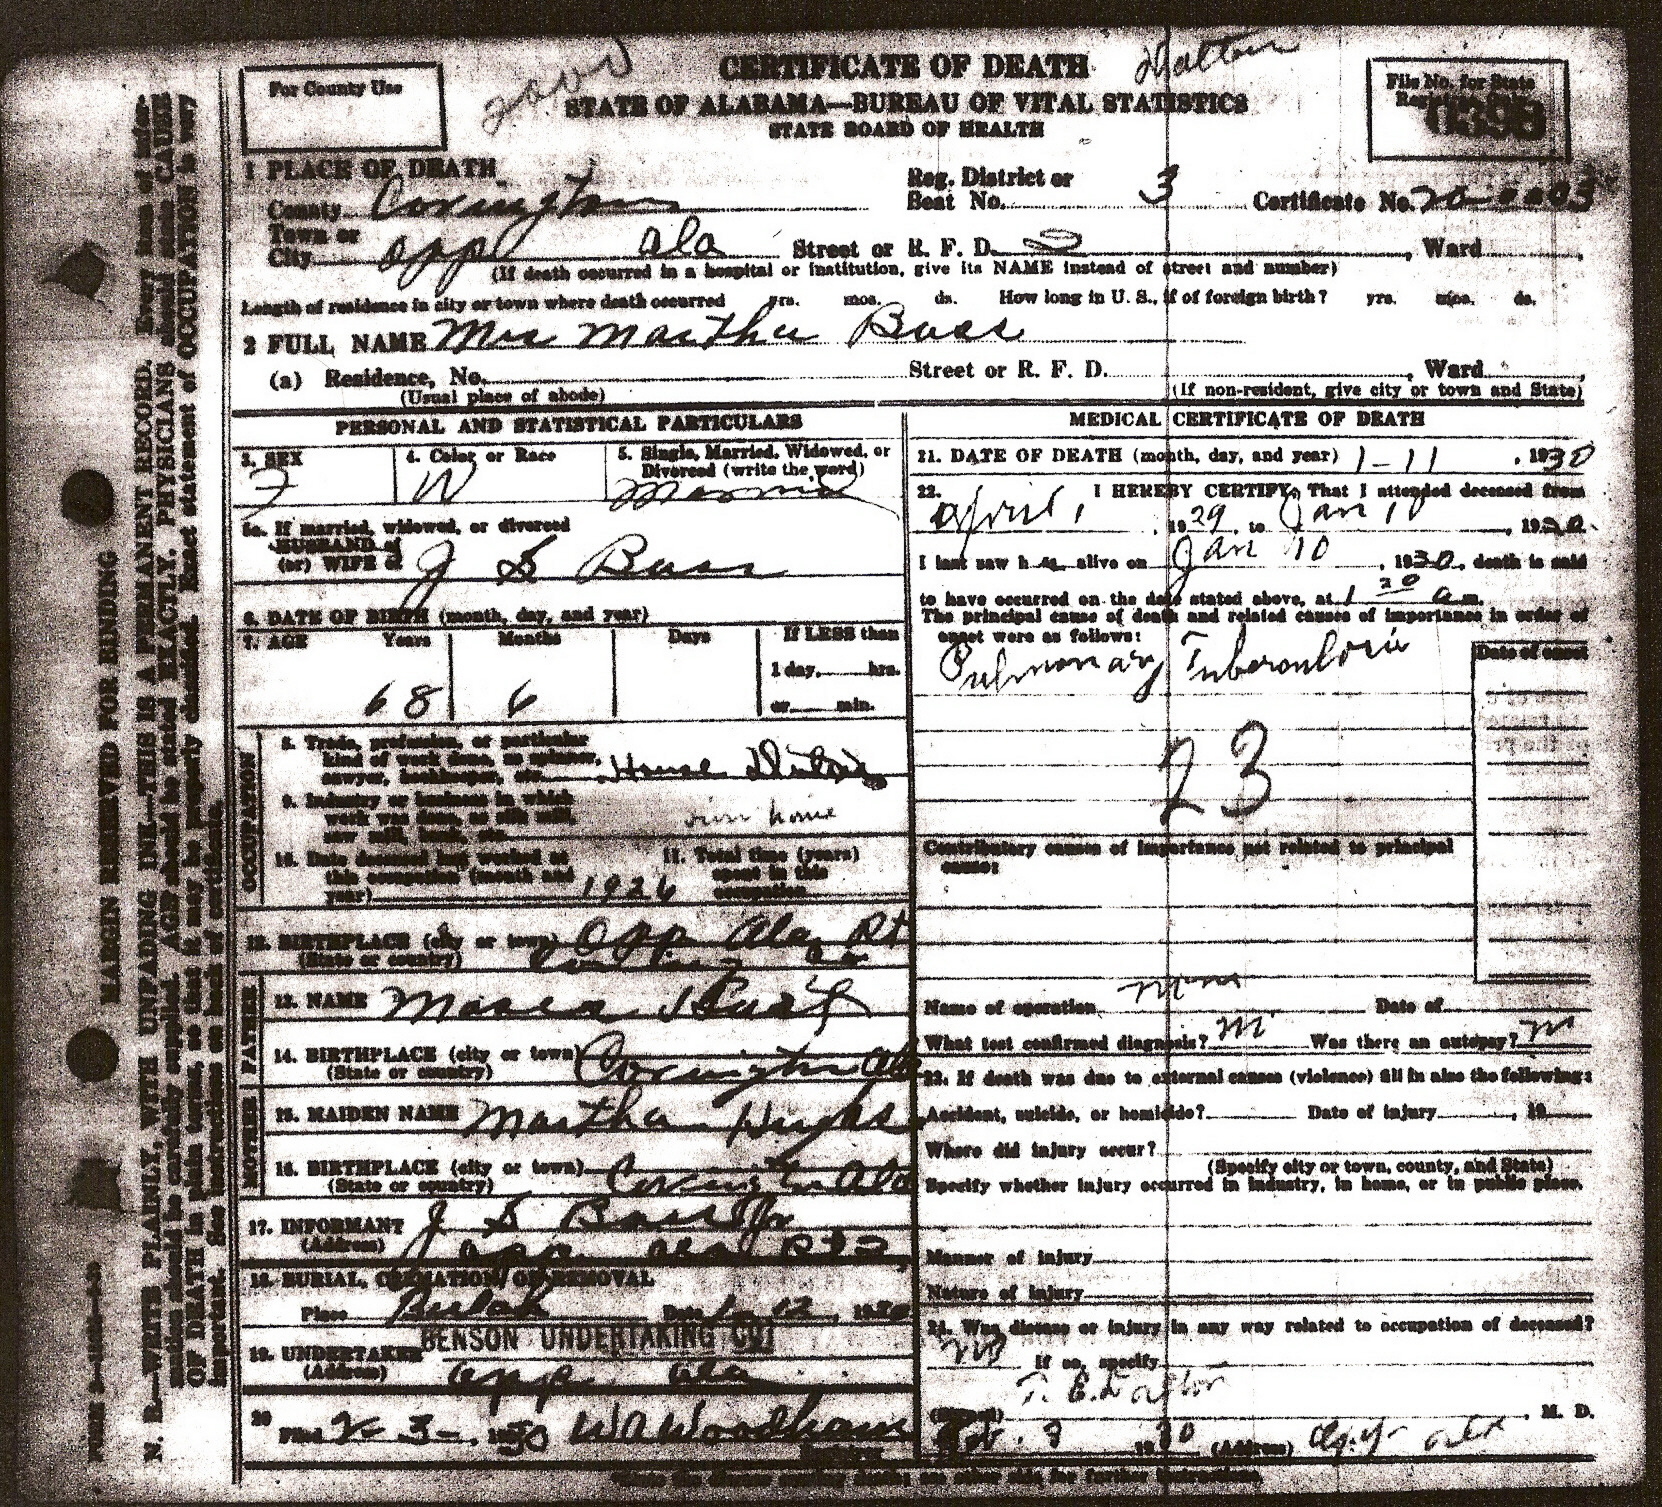 CERTIFICATE OF DEATH
STATE OF ALABAMA—BUREAU OF VITAL STATISTICS
STATE BOARD OF HEALTH
For County Use
File No. for State
1 PLACE OF DEATH
County Covington
Reg. District or
Beat No. 3
Certificate No.
Town or
City Opp Ala Street or R. F. D. 2, Ward
(If death occurred in a hospital or institution, give its NAME instead of street and number)
Length of residence in city or town where death occurred yrs. mos. ds. How long in U. S., if of foreign birth? yrs. mos. ds.
2 FULL NAME Mrs Martha Bass
(a) Residence, No. Street or R. F. D., Ward
(Usual place of abode) (If non-resident, give city or town and State)
PERSONAL AND STATISTICAL PARTICULARS
3. SEX F
4. Color or Race W
5. Single, Married, Widowed, or
Divorced (write the word)
Married
5a. If married, widowed, or divorced
HUSBAND of
(or) WIFE of J S Bass
6. DATE OF BIRTH (month, day, and year)
7. AGE Years Months Days If LESS than
1 day, hrs.
or min.
68 6
OCCUPATION
8. Trade, profession, or particular
kind of work done, as spinner,
sawyer, bookkeeper, etc. House
9. Industry or business in which
work was done, as silk mill,
saw mill, bank, etc. own home
10. Date deceased last worked at
this occupation (month and
year) 1926
11. Total time (years)
spent in this
occupation
12. BIRTHPLACE (city or town) Opp Ala Rt
(State or country)
FATHER
13. NAME
14. BIRTHPLACE (city or town) Covington Ala
(State or country)
MOTHER
15. MAIDEN NAME Martha
16. BIRTHPLACE (city or town) Covington Ala
(State or country)
17. INFORMANT J S Bass Jr
(Address) Opp Ala Rt 2
18. BURIAL, CREMATION, OR REMOVAL
Place Beulah Date 1-12, 1930
19. UNDERTAKER BENSON UNDERTAKING CO.
(Address) Opp Ala
20
Filed 2-3-, 1930 W A Woodham
MEDICAL CERTIFICATE OF DEATH
21. DATE OF DEATH (month, day, and year) 1-11, 1930
22. I HEREBY CERTIFY, That I attended deceased from
April 1, 1929, to Jan 10, 1930.
I last saw h alive on Jan 10, 1930, death is said
to have occurred on the date stated above, at 1 20 a m.
The principal cause of death and related causes of importance in order of
onset were as follows:
Date of onset
Pulmonary Tuberculosis
23
Contributory causes of importance not related to principal
cause:
Name of operation Date of
What test confirmed diagnosis? Was there an autopsy?
23. If death was due to external causes (violence) fill in also the following:
Accident, suicide, or homicide? Date of injury, 19
Where did injury occur?
(Specify city or town, county, and State)
Specify whether injury occurred in industry, in home, or in public place.
Manner of injury
Nature of injury
24. Was disease or injury in any way related to occupation of deceased?
No If so, specify
(Signed), M. D.
Feb. 3 1930 (Address)
MARGIN RESERVED FOR BINDING
N. B.—WRITE PLAINLY, WITH UNFADING INK—THIS IS A PERMANENT RECORD. Every item of infor-
mation should be carefully supplied. AGE should be stated EXACTLY. PHYSICIANS should state CAUSE
OF DEATH in plain terms, so that it may be properly classified. Exact statement of OCCUPATION is very
important. See instructions on back of certificate.